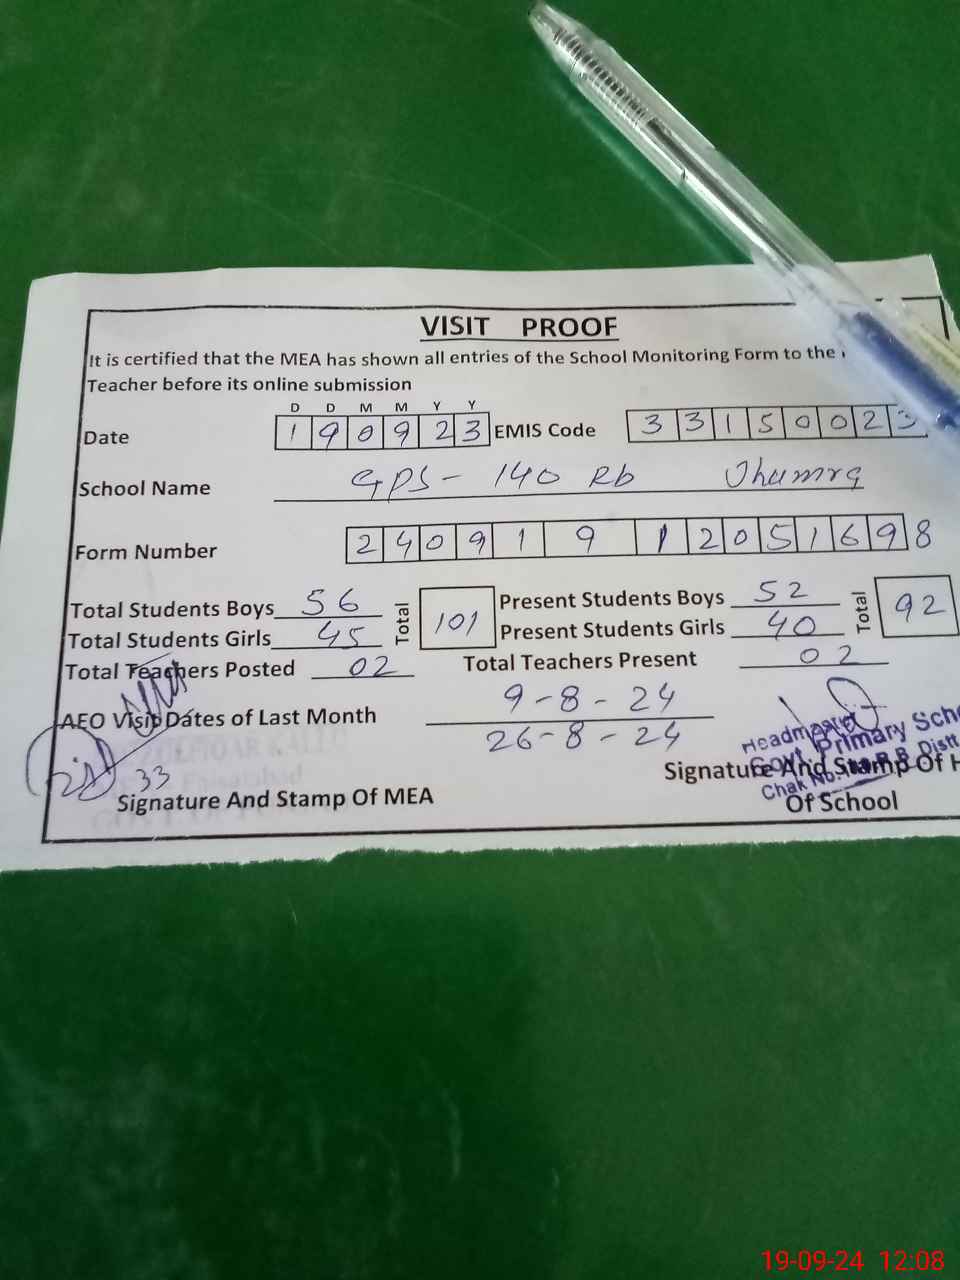 VISIT PROOF
It is certified that the MEA has shown all entries of the School Monitoring Form to the
Teacher before its online submission
D D M M Y Y
Date 190923 EMIS Code 33150023
School Name GPS- 140 Rb Jhumra
Form Number 240919120516998
Total Students Boys 56 Total 101 Present Students Boys 52 Total 92
Total Students Girls 45 Present Students Girls 40
Total Teachers Posted 02 Total Teachers Present 02
AEO Visit Dates of Last Month 9-8-24
26-8-24
33
Headmaster
Govt. Primary Scho
Chak No. R.B. Distt
Signature And Stamp Of MEA
Signature And Stamp Of H
Of School
19-09-24 12:08